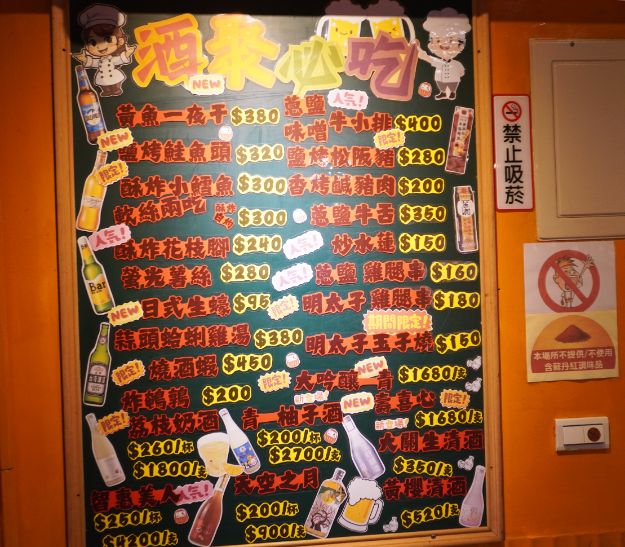 酒聚必吃
NEW
黃魚一夜干 $380
蔥鹽 味噌 牛小排 $400
人氣!
NEW
鹽烤鮭魚頭 $320
鹽烤松阪豬 $280
限定!
限定!
酥炸小鱈魚 $300
香烤鹹豬肉 $200
軟絲兩吃 酥炸 $300
蔥鹽牛舌 $350
人氣!
酥炸花枝腳 $240
人氣!
炒水蓮 $150
螢光薯絲 $280
人氣!
蔥鹽 雞腿串 $160
NEW
日式生蠔 $95
限定!
明太子 雞腿串 $180
期間限定!
蒜頭蛤蜊雞湯 $380
明太子玉子燒 $150
限定!
燒酒蝦 $450
NEW
限定!
大吟釀一青 $1680/支
炸鵪鶉 $200
NEW
壽喜心 限定!
$1680/支
荔枝奶酒
$260/杯
$1800/支
青一柚子酒
$200/杯
$2700/支
大關生清酒
$350/支
智惠美人 人氣!
$250/杯
$4200/支
天空之月
$200/杯
$900/支
黃櫻清酒
$520/支
Bar
禁止吸菸
本場所不提供/不使用
含蘇丹紅調味品